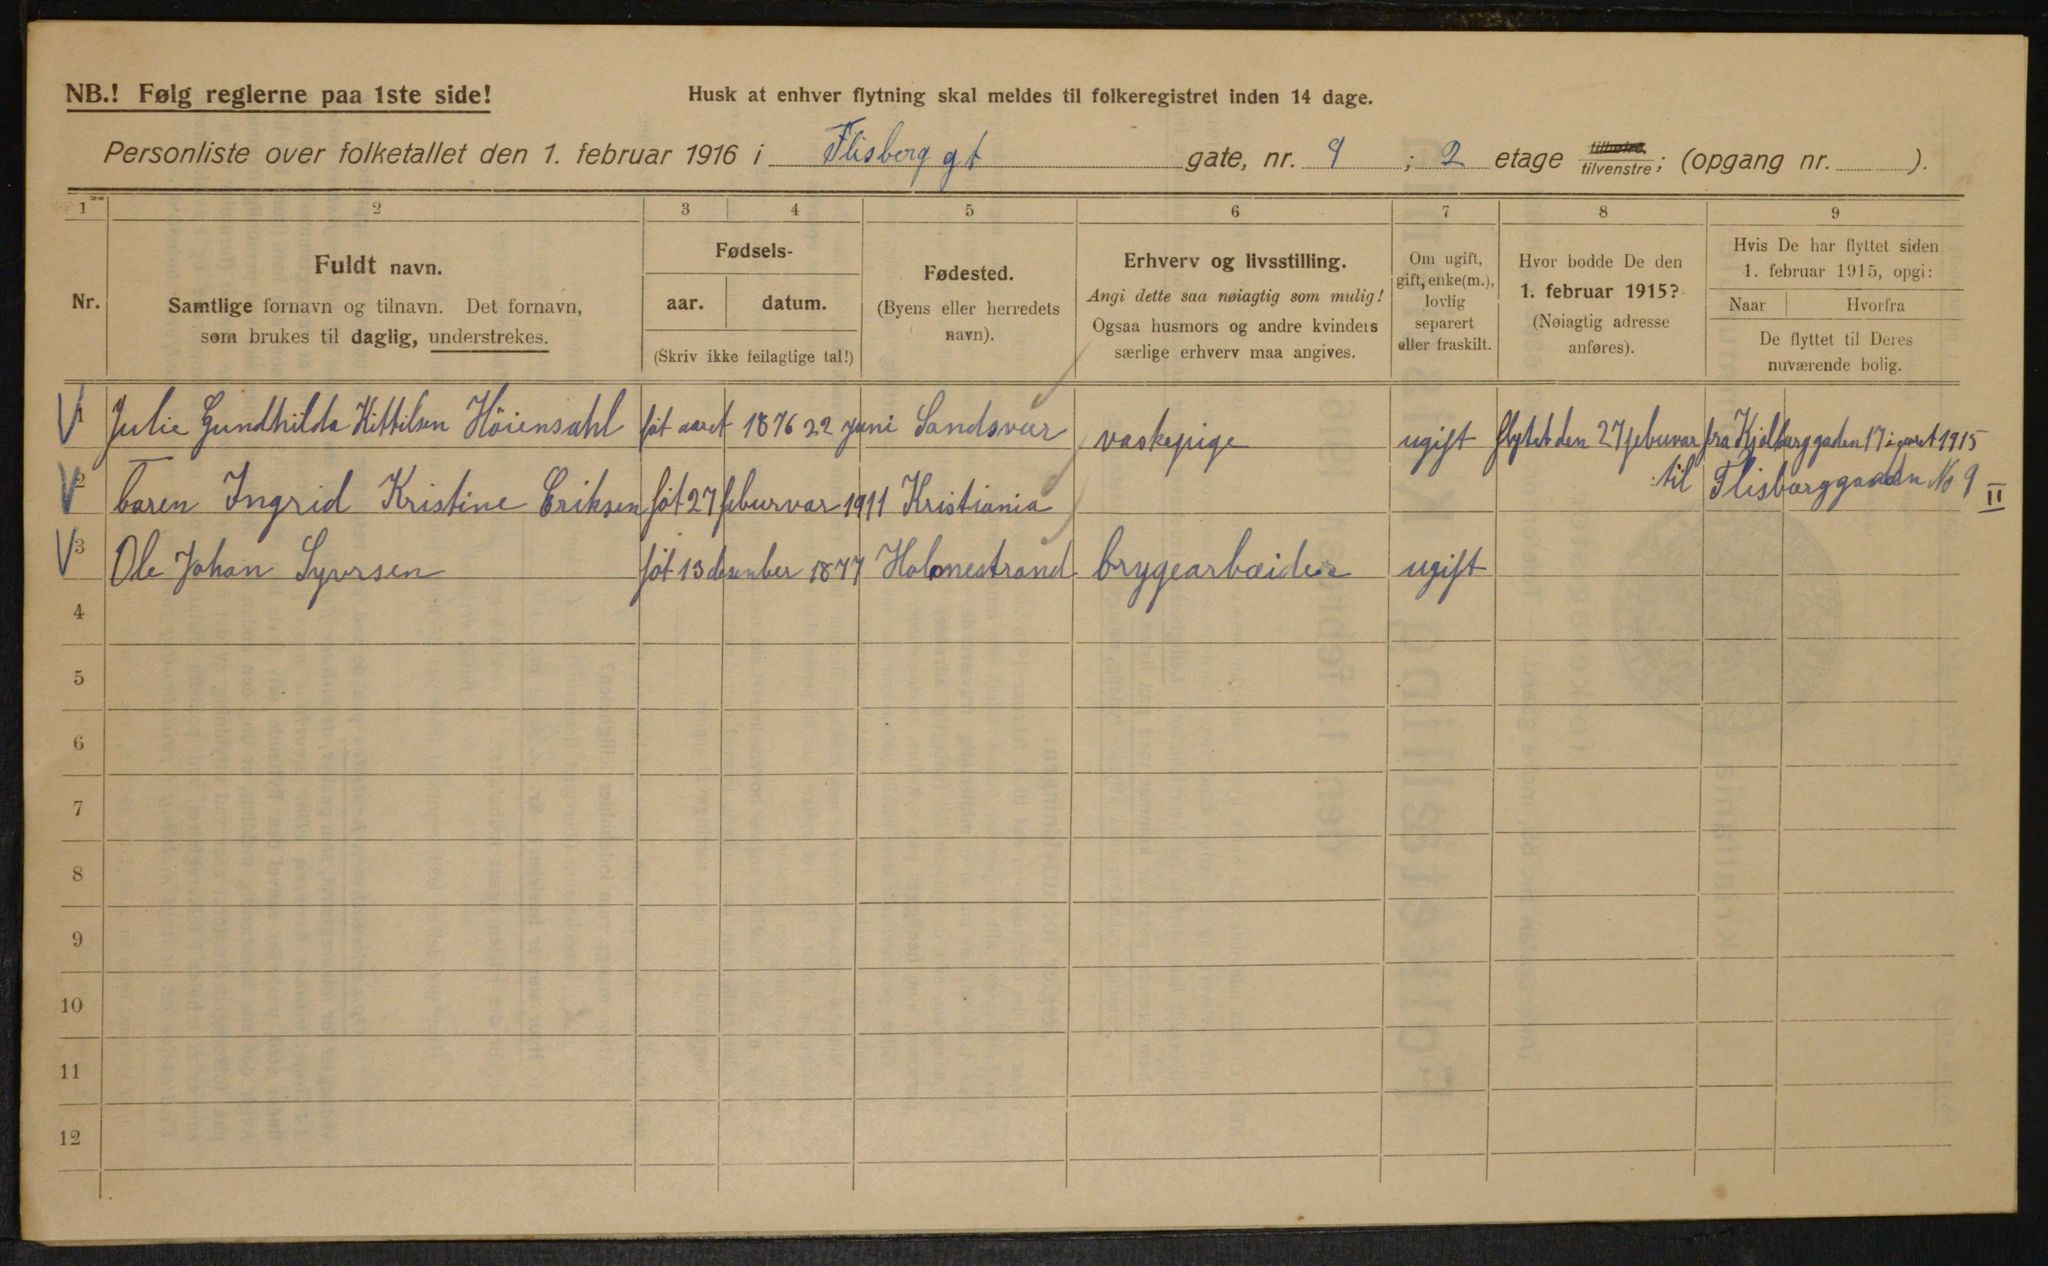 NB.! Følg reglerne paa 1ste side!
Husk at enhver flytning skal meldes til folkeregistret inden 14 dage.
Personliste over folketallet den 1. februar 1916 i Flisberg gt gate, nr. 9 ; 2 etage tilhøire, tilvenstre; (opgang nr. ).
1 2 3 4 5 6 7 8 9
Nr.
Fuldt navn.
Samtlige fornavn og tilnavn. Det fornavn,
som brukes til daglig, understrekes.
Fødsels-
aar. datum.
(Skriv ikke feilagtige tal!)
Fødested.
(Byens eller herredets
navn).
Erhverv og livsstilling.
Angi dette saa nøiagtig som mulig!
Ogsaa husmors og andre kvinders
særlige erhverv maa angives.
Om ugift,
gift, enke(m.),
lovlig
separert
eller fraskilt.
Hvor bodde De den
1. februar 1915?
(Nøiagtig adresse
anføres).
Hvis De har flyttet siden
1. februar 1915, opgi:
Naar Hvorfra
De flyttet til Deres
nuværende bolig.
1 Julie Gundhilda Kittilsen Höiensahl föt aaret 1876 22 juni Sandsvær vaskepige ugift flytet den 27 febuvar fra Kjølbærggaden 17 i aaret 1915
til Flisbærggaden No 9 II
2 baren Ingrid Kristine Eriksen föt 27 feburvar 1911 Kristiania
3 Ole Johan Syvrsen föt 13 desember 1877 Holmestrand brygearbæider ugift
4
5
6
7
8
9
10
11
12